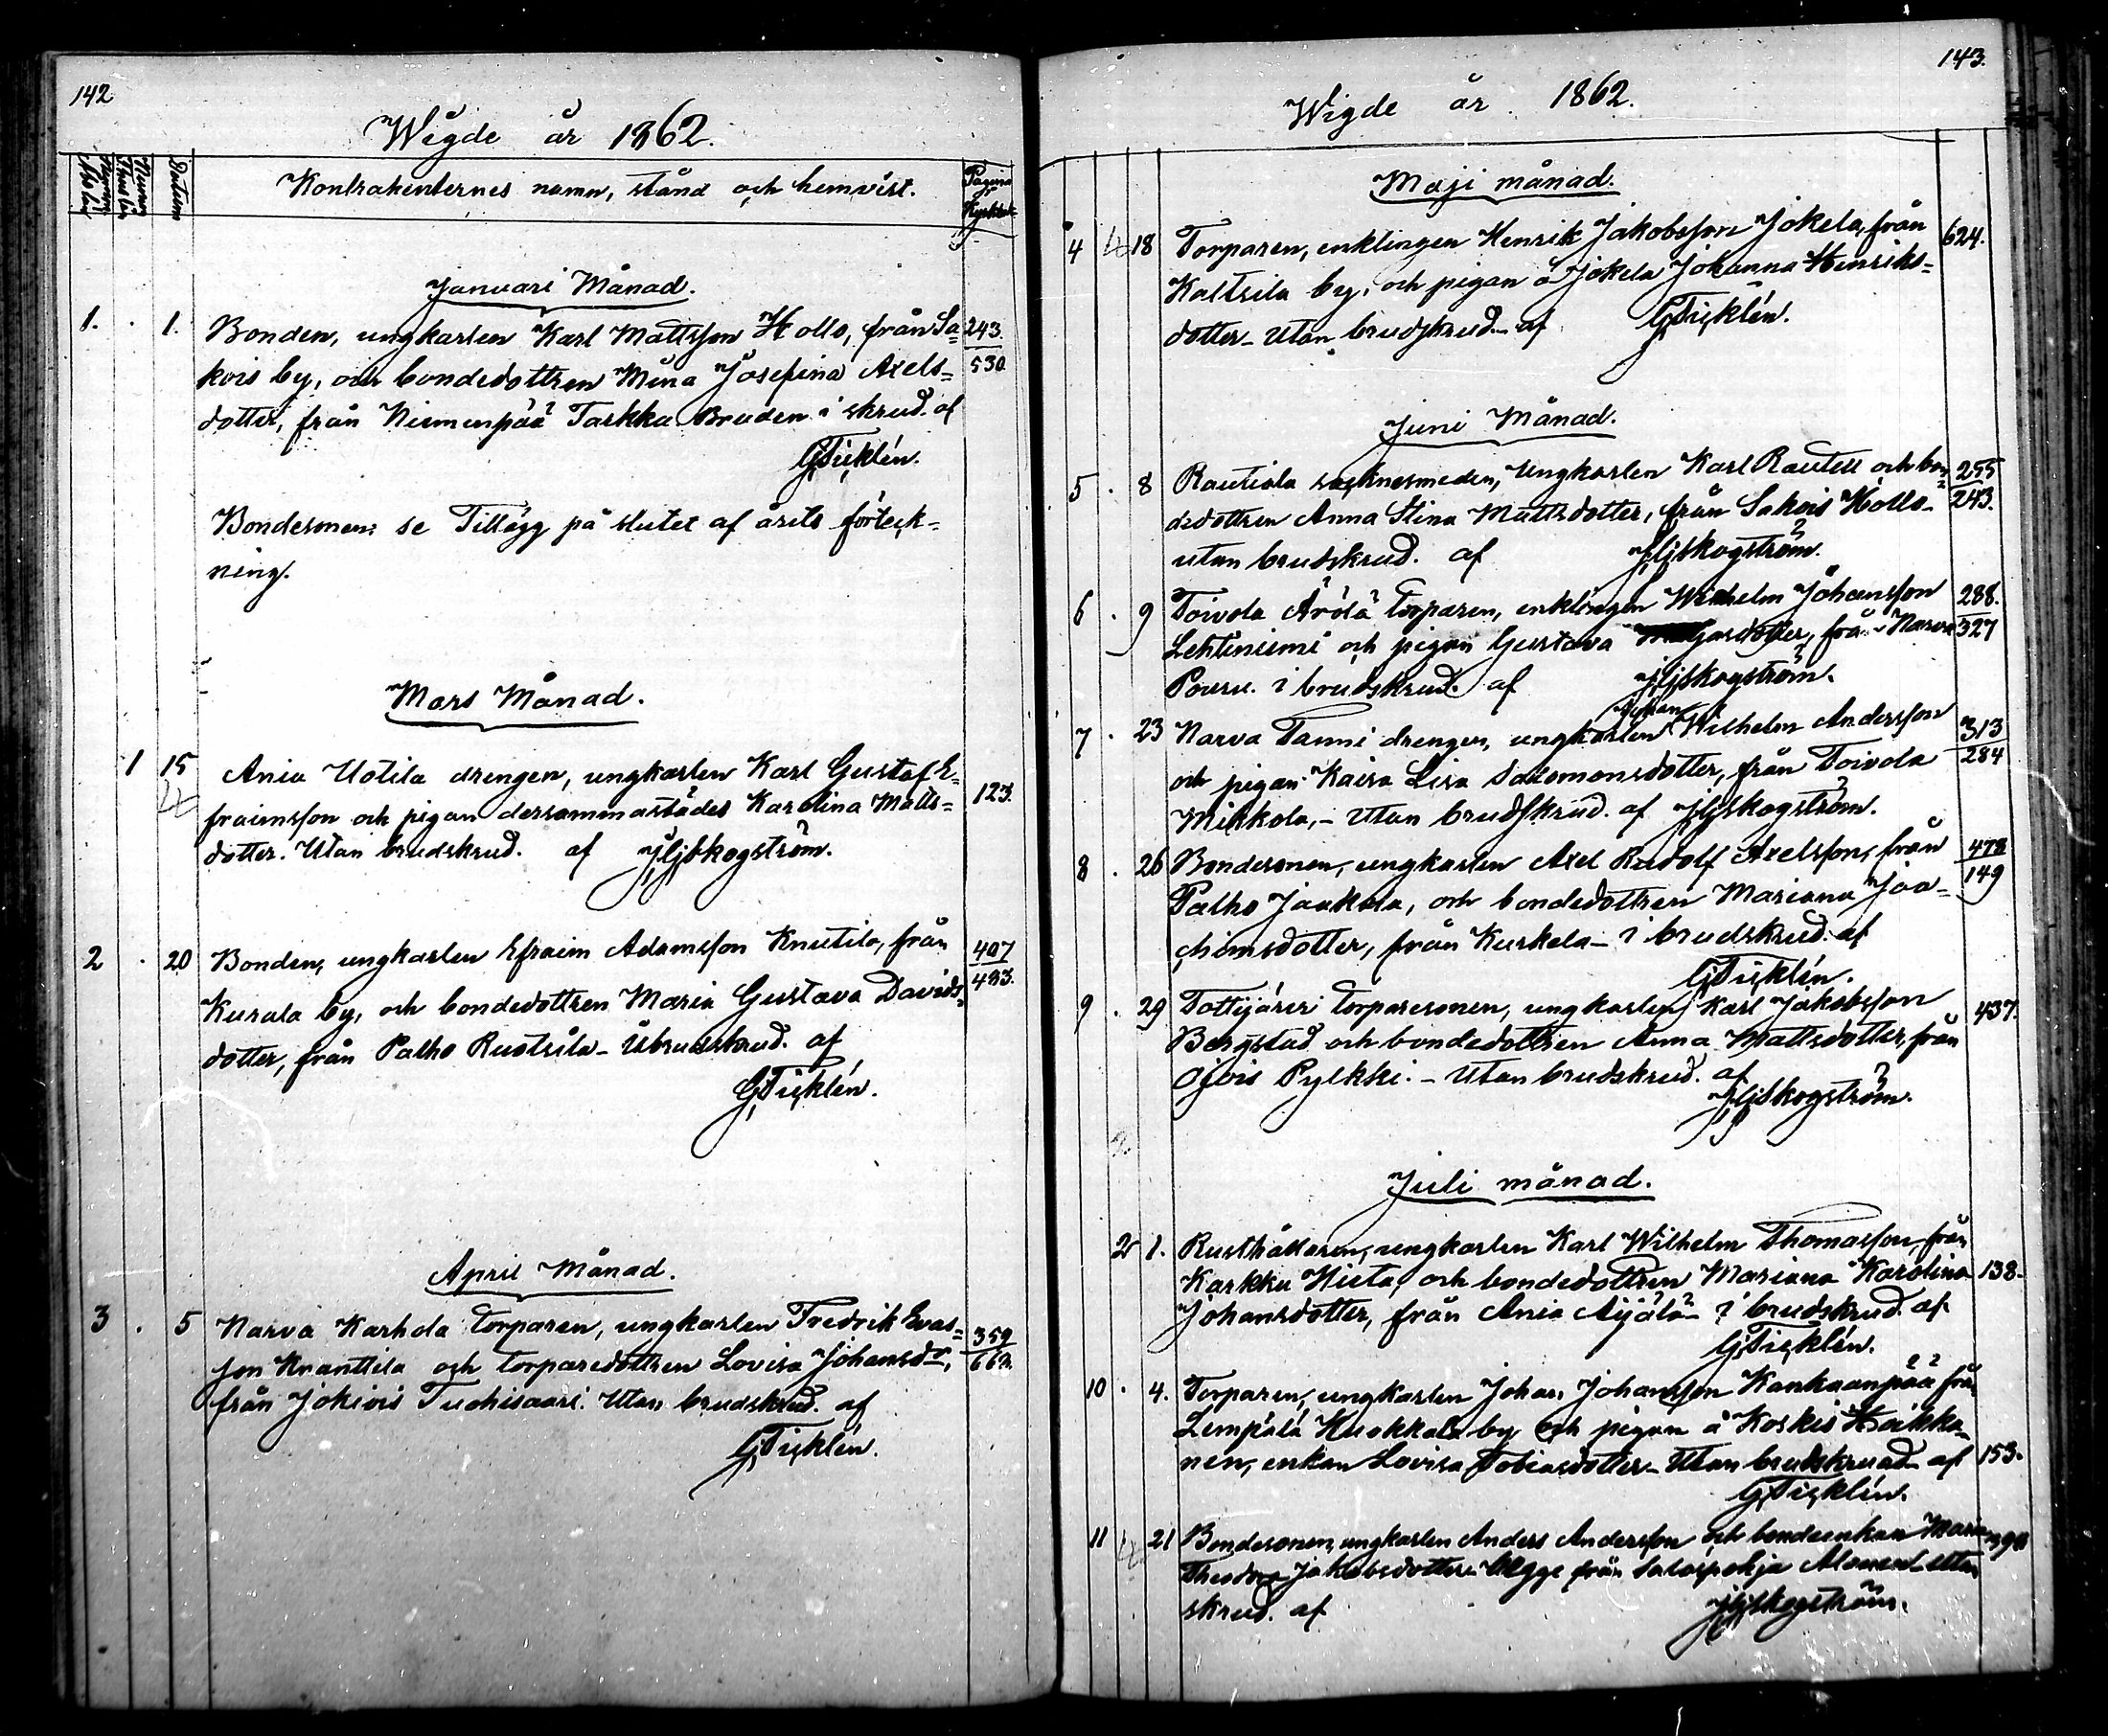 142
Wigde år 1862.
Nummer i Åbo län
Nummer i Thus län
Datum
Kontrahenternes namn, stånd och hemvist.
Pagina i Kyrkbok
Januari Månad.
1. 1. Bonden, ungkarlen Karl Mattsson Hollo, från Sa= 243.
kois by, och bondedottren Mina Josefina Axels= 530
dotter, från Niemenpää Tarkka Bruden i skrud. af
G Ticklén.
Bondesonen: se Tillägg på slutet af årets förteck=
ning.
Mars Månad.
1 15 Ania Uotila drengen, ungkarlen Karl Gustaf E=
fraimsson och pigan dersammastädes Karolina Matts= 123.
dotter. Utan brudskrud. af Skogström.
2 . 20 Bonden, ungkarlen Efraim Adamsson Knutila, från 407
Kurala by, och bondedottren Maria Gustava Davids= 483.
dotter, från Palho Ruotsila - i brudskrud. af
G Ticklén.
April Månad.
3 . 5 Narva Karhola torparen, ungkarlen Fredrik Evas= 359
son Kranttila och torparedottren Lovisa Johansdr, 662.
från Jokiois Tuohisaari. Utan brudskrud. af
G Ticklén.
143.
Wigde år 1862.
Maji månad.
4 18 Torparen, enklingen Henrik Jakobsson Jokela, från 624.
Kaltsila by, och pigan å Jokela Johanna Henriks=
dotter - Utan brudskrud - af G Ticklén.
Juni Månad.
5 . 8 Rautiala socknesmeden, Ungkarlen Karl Rautell och bon= 255
dedottren Anna Stina Mattsdotter, från Sakois Hollo - 243.
utan brudskrud. af Skogström.
6 . 9 Toivola Ärölä torparen, enklingen Wilhelm Johansson 288.
Lehtiniemi och pigan Gustava från Narva 327
Pouru. i brudskrud. af Skogström.
Johan
7 . 23 Narva Tanni drengen, ungkarlen Wilhelm Andersson 313
och pigan Kaisa Lisa Salomonsdotter, från Toivola 284
Mikkola, - Utan brudskrud. af Skogström.
8 . 26 Bondesonen, ungkarlen Axel Rudolf Axelsson, från 478
Palho Jaakola, och bondedottren Mariana Joa= 149
chimsdotter, från Kurkela - i brudskrud. af
G Ticklén.
9 . 29 Tottijärvi torparesonen, ungkarlen Karl Jakobsson 437.
Bergstad och bondedottren Anna Mattsdotter, från
Ojois Pylkki. - Utan brudskrud. af
Skogström.
Juli månad.
2 1. Rusthållaren, ungkarlen Karl Wilhelm Thomasson, från
Karkku Hieta, och bondedottren Mariana Karolina 138.
Johansdotter, från Ania Äijälä - i brudskrud. af
G Ticklén.
10 . 4. Torparen, ungkarlen Johan Johansson Kankaanpää från
Lempälä Kuokkala by och pigan å Koskis Hoikka=
nen, enkan Lovisa Tobiasdotter - Utan brudskrud - af 153.
G Ticklén.
11 21 Bondesonen, ungkarlen Anders Andersson och bondeenkan Maria
Theodora Jakobsdotter - begge från Salospohja Alanen - Utan
skrud. af Skogström.